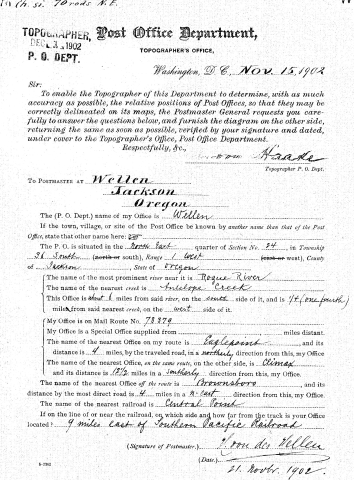 ch. si. 70 rods N.E.
TOPOGRAPHER, Post Office Department,
DEC 1902
P. O. DEPT. TOPOGRAPHER'S OFFICE,
Washington, D. C. Nov. 15, 1902
Sir:
To enable the Topographer of this Department to determine, with as much
accuracy as possible, the relative positions of Post Offices, so that they may be
correctly delineated on its maps, the Postmaster General requests you care-
fully to answer the questions below, and furnish the diagram on the other side,
returning the same as soon as possible, verified by your signature and dated,
under cover to the Topographer's Office, Post Office Department.
Respectfully, &c.,
von Haake
Topographer P. O. Dept.
To POSTMASTER AT Wellen
Jackson
Oregon
The (P. O. Dept.) name of my Office is Wellen
If the town, village, or site of the Post Office be known by another name than that of the Post
Office, state that other name here:
The P. O. is situated in the North East quarter of Section No. 24, in Township
36 South (north or south), Range 1 West (east or west), County
of Jackson, State of Oregon
The name of the most prominent river near it is Rogue River
The name of the nearest creek is Antelope Creek
This Office is about 6 miles from said river, on the south side of it, and 1/4 (one fourth)
miles from said nearest creek, on the west side of it.
My Office is on Mail Route No. 73279
My Office is a Special Office supplied from miles distant.
The name of the nearest Office on my route is Eaglepoint and its
distance is 4 miles, by the traveled road, in a northerly direction from this, my Office.
The name of the nearest Office, on the same route, on the other side, is Climax
and its distance is 12 1/2 miles in a southerly direction from this, my Office.
The name of the nearest Office off the route is Brownsboro and its
distance by the most direct road is 4 miles in a n-east direction from this, my Office.
The name of the nearest railroad is Central Point
If on the line of or near the railroad, on which side and how far from the track is your Office
located? 9 miles east of Southern Pacific Railroad
(Signature of Postmaster.) von der Hellen
(Date.) 21. Novbr. 1902.